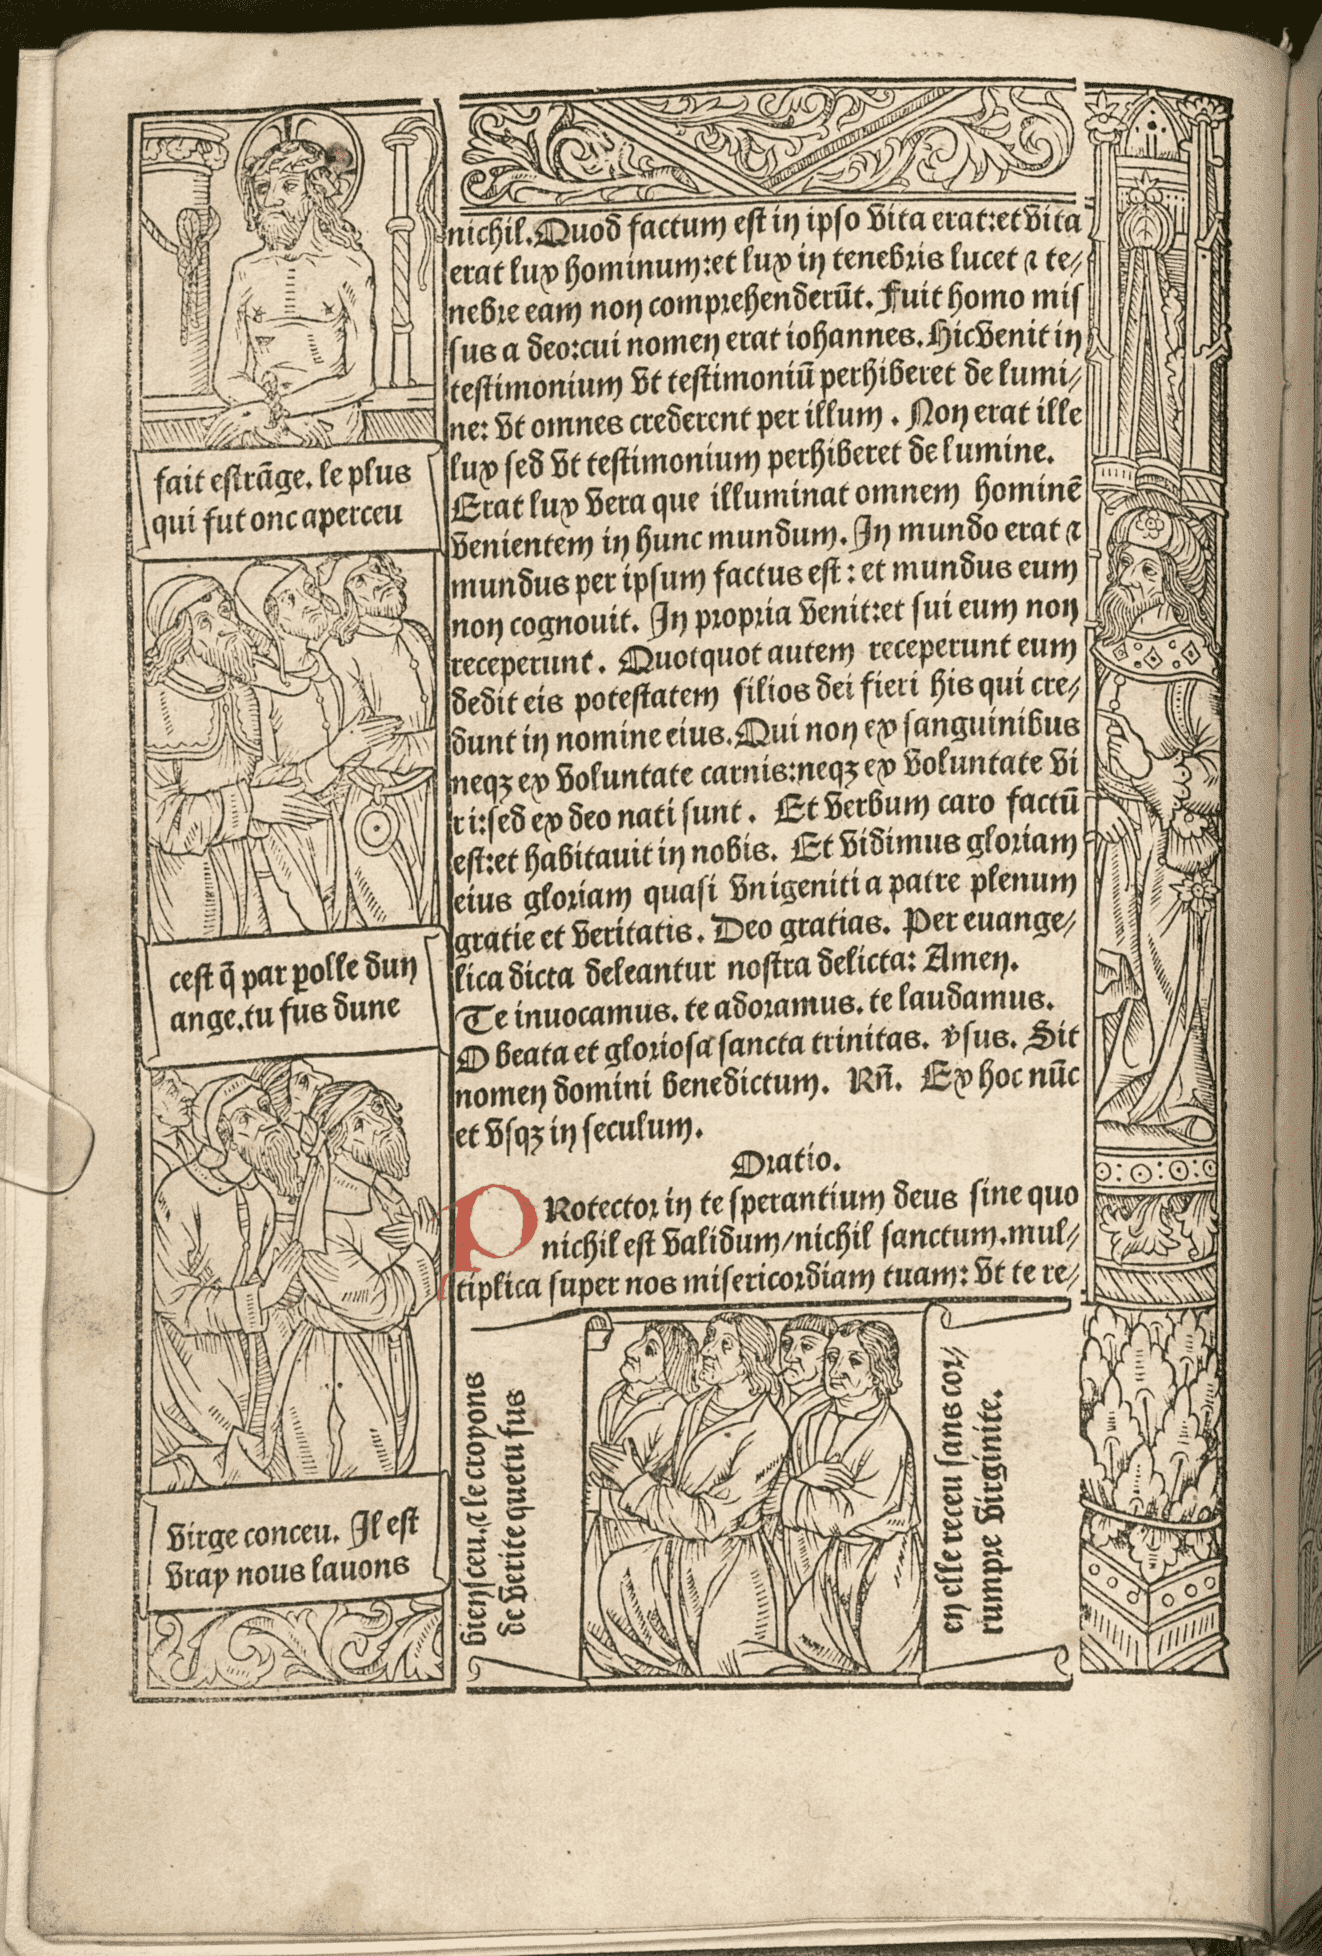 nichil. Quod factum est in ipso vita erat: et vita
erat lux hominum: et lux in tenebris lucet ⁊ te⸗
nebre eam non comprehenderūt. Fuit homo mis
sus a deo: cui nomen erat iohannes. Hic venit in
testimonium vt testimoniū perhiberet de lumi⸗
ne: vt omnes crederent per illum. Non erat ille
lux sed vt testimonium perhiberet de lumine.
Erat lux vera que illuminat omnem hominē
venientem in hunc mundum. In mundo erat ⁊
mundus per ipsum factus est: et mundus eum
non cognouit. In propria venit: et sui eum non
receperunt. Quotquot autem receperunt eum
dedit eis potestatem filios dei fieri his qui cre⸗
dunt in nomine eius. Qui non ex sanguinibus
neqꝫ ex voluntate carnis: neqꝫ ex voluntate vi
ri: sed ex deo nati sunt. Et verbum caro factū
est: et habitauit in nobis. Et vidimus gloriam
eius gloriam quasi vnigeniti a patre plenum
gratie et veritatis. Deo gratias. Per euange⸗
lica dicta deleantur nostra delicta: Amen.
Te inuocamus. te adoramus. te laudamus.
O beata et gloriosa sancta trinitas. v̾sus. Sit
nomen domini benedictum. Rn̄. Ex hoc nūc
et vsqꝫ in seculum.
Oratio.
PRotector in te sperantium deus sine quo
nichil est validum/nichil sanctum. mul⸗
tiplica super nos misericordiam tuam: vt te re⸗
fait estrāge. le plus
qui fut onc aperceu
cest q̄ par ꝑolle dun
ange. tu fus dune
virge conceu. Il est
vray nous lauons
bien sceu. ⁊ le croyons
de verite que tu fus
en elle receu sans cor⸗
rumpre virginite.